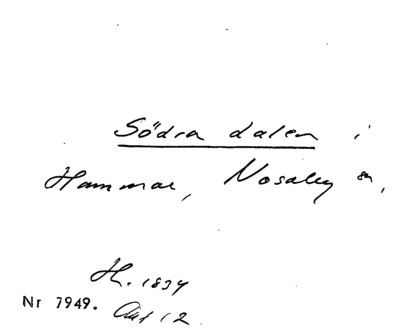 Södra dalen i
Hammar, Nosaby sn,
H. 1834
Nr 7949. Akt 12